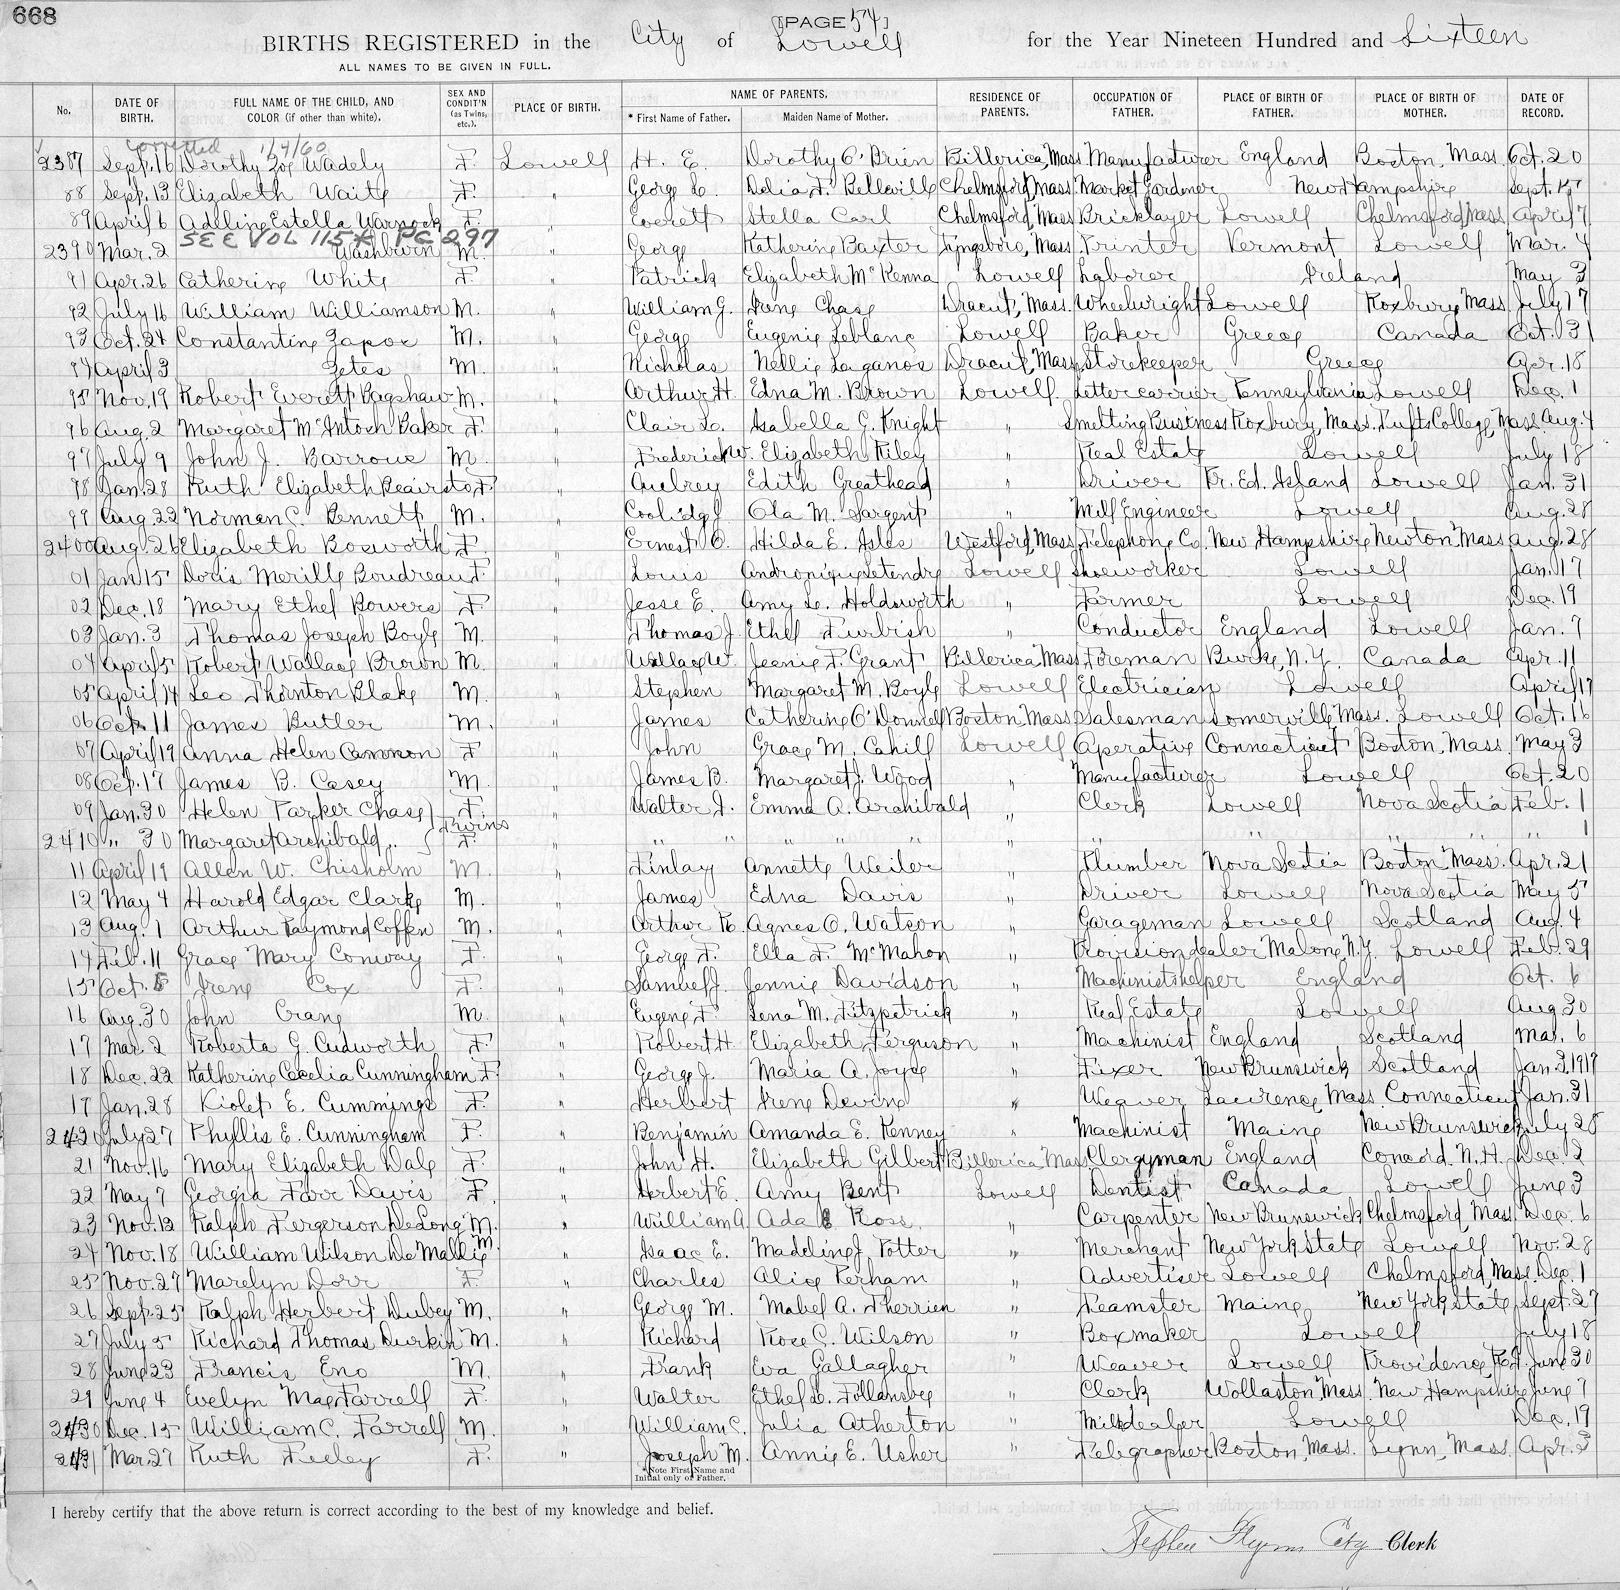 668
[PAGE 54]
BIRTHS REGISTERED in the City of Lowell for the Year Nineteen Hundred and Sixteen
ALL NAMES TO BE GIVEN IN FULL.
No. DATE OF BIRTH. FULL NAME OF THE CHILD, AND COLOR (if other than white). SEX AND CONDIT'N (as Twins, etc.). PLACE OF BIRTH. NAME OF PARENTS. * First Name of Father. Maiden Name of Mother. RESIDENCE OF PARENTS. OCCUPATION OF FATHER. PLACE OF BIRTH OF FATHER. PLACE OF BIRTH OF MOTHER. DATE OF RECORD.
Corrected 1/4/60
2387 Sept. 16 Dorothy Zoe Wadely F. Lowell H. E. Dorothy O'Brien Billerica, Mass Manufacturer England Boston, Mass. Oct. 20
88 Sept. 13 Elizabeth Waite F. " George L. Delia F. Belleville Chelmsford, Mass Market Gardener New Hampshire Sept.
89 April 6 Adeline Estella Warnock F. " Everett Stella Carl Chelmsford, Mass Bricklayer Lowell Chelmsford, Mass April 7
SEE VOL 115* PG 297
2390 Mar. 2 Washburn M. " George Katherine Baxter Tyngsboro, Mass. Printer Vermont Lowell Mar. 4
91 Apr. 26 Catherine White F. " Patrick Elizabeth McKenna Lowell Laborer Ireland May 3
92 July 16 William Williamson M. " William G. Irene Chase Dracut, Mass. Wheelwright Lowell Roxbury, Mass. July 17
93 Oct. 24 Constantine Zapoe M. " George Eugenie Leblanc Lowell Baker Greece Canada Oct. 31
94 April 3 Zetes M. " Nicholas Nellie Laganos Dracut, Mass. Storekeeper Greece Apr. 18
95 Nov. 19 Robert Everett Bagshaw M. " Arthur H. Edna M. Brown Lowell Lettercarrier Pennsylvania Lowell Dec. 1
96 Aug. 2 Margaret McIntosh Baker F. " Clair L. Isabella G. Knight " Smelting Business Roxbury, Mass. Tufts College, Mass. Aug. 4
97 July 9 John J. Barrowe M. " Frederick W. Elizabeth Riley " Real Estate Lowell July 18
98 Jan. 28 Ruth Elizabeth Beairsto F. " Aubrey Edith Greathead " Driver Pr. Ed. Island Lowell Jan. 31
99 Aug. 22 Norman C. Bennett M. " Coolidge J. Ola M. Sargent " Mill Engineer Lowell Aug. 28
2400 Aug. 26 Elizabeth Bosworth F. " Ernest C. Hilda E. Isles Westford, Mass. Telephone Co. New Hampshire Newton, Mass. Aug. 28
01 Jan. 15 Doris Merille Boudreau F. " Louis Letendre Lowell Shoeworker Lowell Jan. 17
02 Dec. 18 Mary Ethel Bowers F. " Jesse E. Amy L. Holdsworth " Farmer Lowell Dec. 19
03 Jan. 3 Thomas Joseph Boyle M. " Thomas J. Ethel Furbish " Conductor England Lowell Jan. 7
04 April 5 Robert Wallace Brown M. " Wallace W. Jeanie F. Grant Billerica, Mass. Foreman Burke, N. Y. Canada Apr. 11
05 April 14 Leo Thornton Blake M. " Stephen Margaret M. Boyle Lowell Electrician Lowell April 17
06 Oct. 11 James Butler M. " James Catherine O'Donnell Boston, Mass. Salesman Somerville, Mass. Lowell Oct. 16
07 April 19 Anna Helen Cameron F. " John Grace M. Cahill Lowell Operative Connecticut Boston, Mass. May 3
08 Oct. 17 James B. Casey M. " James B. Margaret J. Wood " Manufacturer Lowell Oct. 20
09 Jan. 30 Helen Parker Chase F. Twins " Walter J. Emma A. Archibald " Clerk Lowell Nova Scotia Feb. 1
2410 " 30 Margaret Archibald " F. " " " " " " " " " " " 1
11 April 19 Allen W. Chisholm M. " Finlay Annette Weiler " Plumber Nova Scotia Boston, Mass. Apr. 21
12 May 4 Harold Edgar Clarke M. " James Edna Davis " Driver Lowell Nova Scotia May 5
13 Aug. 1 Arthur Raymond Coffen M. " Arthur R. Agnes O. Watson " Garageman Lowell Scotland Aug. 4
14 Feb. 11 Grace Mary Conway F. " George F. Ella F. McMahon " Provision dealer Malone, N.Y. Lowell Feb. 29
15 Oct. 5 Irene Cox F. " Samuel J. Jennie Davidson " Machinist's helper England Oct. 6
16 Aug. 30 John Crane M. " Eugene F. Lena M. Fitzpatrick " Real Estate Lowell Aug 30
17 Mar. 2 Roberta G. Cudworth F. " Robert H. Elizabeth Ferguson " Machinist England Scotland Mar. 6
18 Dec. 22 Katherine Cecelia Cunningham F. " George J. Maria A. Joyce " Fixer New Brunswick Scotland Jan. 2, 1917
19 Jan. 28 Violet E. Cummings F. " Herbert Irene Devine " Weaver Lawrence, Mass. Connecticut Jan. 31
2420 July 27 Phyllis E. Cunningham F. " Benjamin Amanda E. Kenney " Machinist Maine New Brunswick July 28
21 Nov. 16 Mary Elizabeth Dale F. " John H. Elizabeth Gilbert Billerica Mass. Clergyman England Concord, N. H. Dec. 2
22 May 7 Georgia Farr Davis F. " Herbert E. Amy Bent Lowell Dentist Canada Lowell June 3
23 Nov. 12 Ralph Fergerson DeLong M. " William A. Ada Ross " Carpenter New Brunswick Chelmsford, Mass. Dec. 6
24 Nov. 18 William Wilson De Mallie M. " Isaac E. Madeline J. Potter " Merchant New York State Lowell Nov. 28
25 Nov. 27 Marelyn Dorr F. " Charles Alice Perham " Advertiser Lowell Chelmsford, Mass. Dec. 1
26 Sept. 25 Ralph Herbert Dubey M. " George M. Mabel A. Therrien " Teamster Maine New York State Sept. 27
27 July 5 Richard Thomas Durkin M. " Richard Rose C. Wilson " Boxmaker Lowell July 18
28 June 23 Francis Eno M. " Frank Eva Gallagher " Weaver Lowell Providence, R.I. June 30
29 June 4 Evelyn Mae Farrell F. " Walter Ethel D. Follansbee " Clerk Wollaston, Mass. New Hampshire June 7
2430 Dec. 15 William C. Farrell M. " William C. Julia Atherton " Milkdealer Lowell Dec. 19
2431 Mar. 27 Ruth Feeley F. " Joseph M. Annie E. Usher " Telegrapher Boston, Mass. Lynn, Mass. Apr. 3
*Note First Name and Initial only of Father.
I hereby certify that the above return is correct according to the best of my knowledge and belief.
Stephen Flynn City Clerk